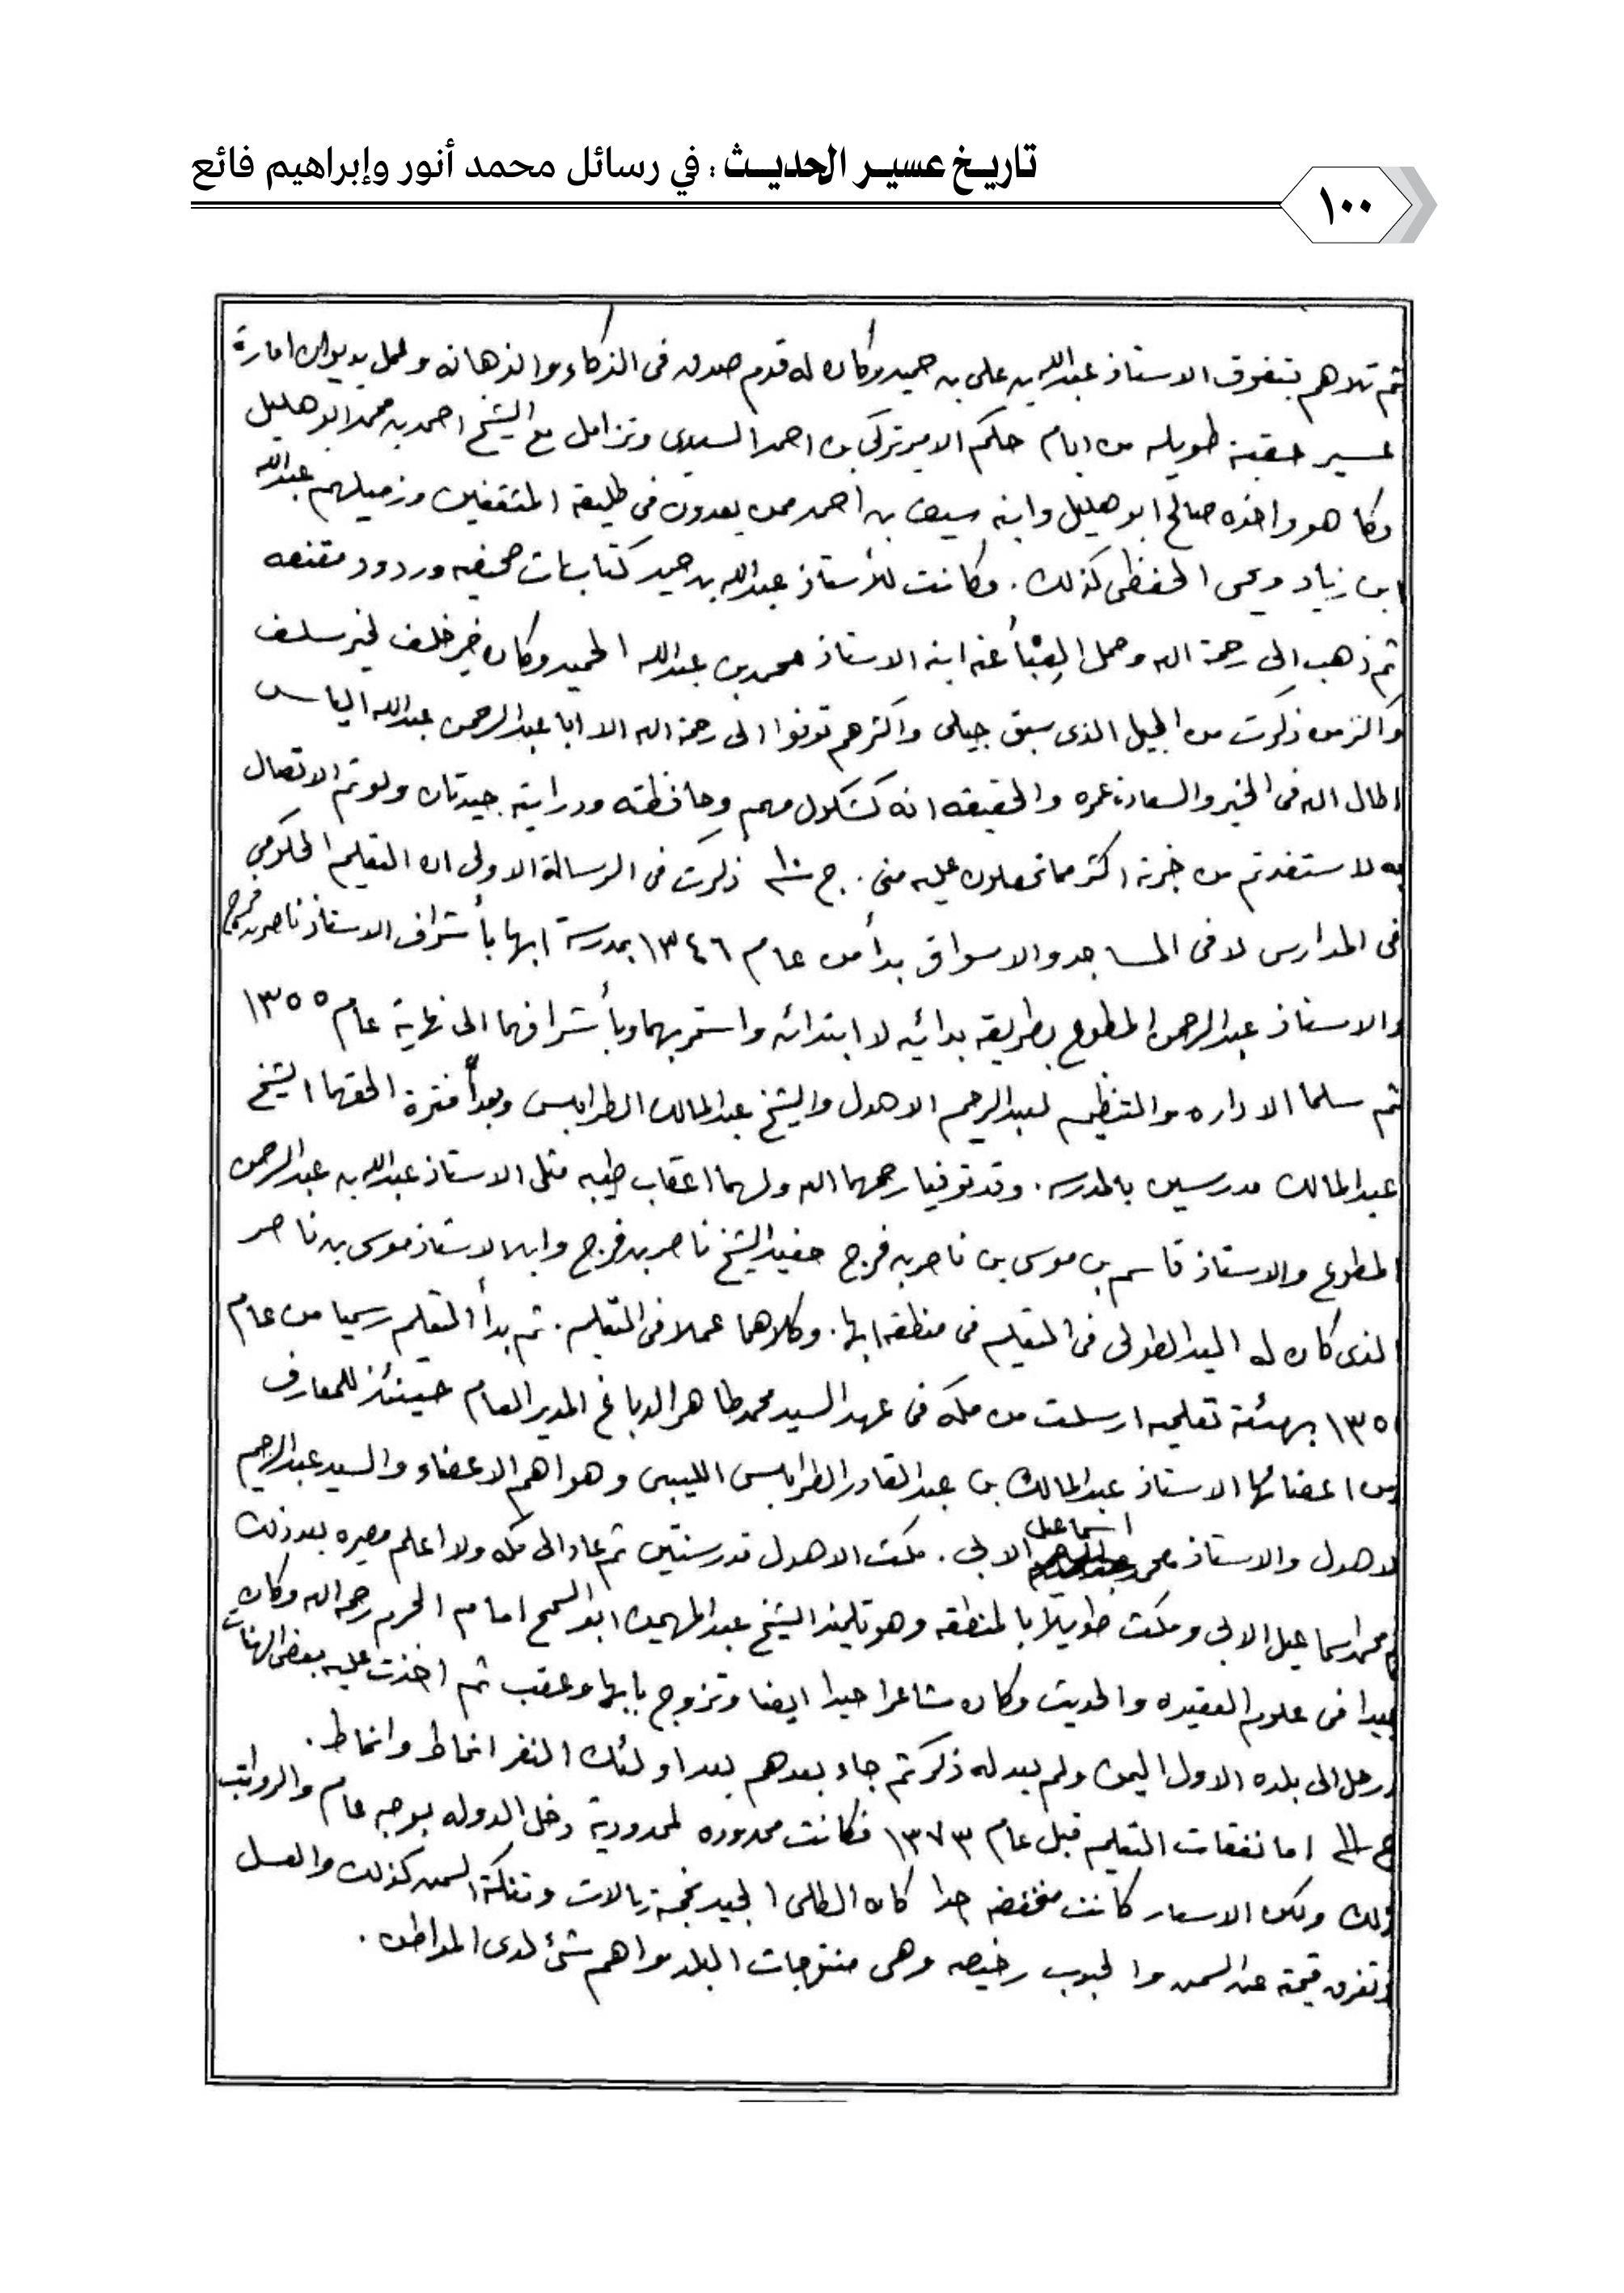 تاريخ عسير الحديث : في رسائل محمد أنور وإبراهيم فائع
١٠٠
ثم تلاهم بتفوق الاستاذ عبدالله بن على بن حميد وكان له قدم صدق فى الذكاء والذهانه وعمل بديوان امارة
عسير حقبة طويله من ايام حكم الامير تركى بن احمد السديرى وتزامل مع الشيخ احمد بن محمد ابو هليل
وكا هو واخوه صالح ابو هليل وابنه سيف بن احمد ممن يعدون فى طليعة المثقفين وزميلهم عبدالله
ابن زياد ويحى الحفظى كذلك . وكانت للأستاذ عبدالله بن حميد كتابات صحفيه وردود مقنعه
ثم ذهب الى رحمة الله وحمل العِبْأ عنه ابنه الاستاذ محمد بن عبدالله الحميد وكان خير خلف لخير سلف
واكثر من ذكرت من الجيل الذى سبق جيلى واكثرهم توفوا الى رحمة الله الا ابا عبدالرحمن عبدالله الياس
اطال الله فى الخير والسعادة عمره والحقيقه انه كشكول مهم وحافظته ودرايته جيدتان ولو تم الاتصال
به لاستفدتم من خبرته اكثر مما تحصلون عليه منى . ج١٠ ذكرت فى الرسالة الاولى ان التعليم الحكومي
فى المدارس لا فى المساجد والاسواق بدأ من عام ١٣٤٦ بمدرسة ابها بأشراف الاستاذ ناصر بن فرج
والاستاذ عبدالرحمن المطوع بطريقه بدائيه لا ابتدائه واستمر بهما وبأشرافهما الى نهاية عام ١٣٥٥
ثم سلما الاداره والتنظيم لعبدالرحيم الاهدل والشيخ عبدالمالك الطرابلسى وبعد فترة الحقهما الشيخ
عبدالمالك مدرسين بالمدرسه . وقد توفيا رحمهما الله ولهما اعقاب طيبه مثل الاستاذ عبدالله بن عبدالرحمن
المطوع والاستاذ قاسم بن موسى بن ناصر بن فرج حفيد الشيخ ناصر بن فرج وابن الاستاذ موسى بن ناصر
الذى كان له اليد الطولى فى التعليم فى منطقة ابها . وكلاهما عملا فى التعليم . ثم بدأ التعليم رسميا من عام
١٣٥ بهئية تعليميه ارسلت من مكه فى عهد السيد محمد طاهر الدباغ المدير العام حينئذ للمعارف
ومن اعضائها الاستاذ عبدالمالك بن عبدالقادر الطرابلسى الليبى وهو اهم الاعضاء والسيد عبدالرحيم
الاهدل والاستاذ محمد اسماعيل الابى . مكث الاهدل قدر سنتين ثم عاد الى مكه ولا اعلم مصيره بعد ذلك
محمد اسماعيل الابى ومكث طويلاً بالمنطقه وهو تلميذ الشيخ عبدالمهيمن ابو السمح امام الحرم رحمه الله وكان
جيدا فى علوم العقيده والحديث وكان شاعرا جيدا ايضا وتزوج بابها وعقب ثم اخذت عليه بعض الهنات
ورحل الى بلده الاول اليمن ولم يعد له ذكر ثم جاء بعدهم بعد اولئك النفر انماط وانماط .
ج١١ اما نفقات التعليم قبل عام ١٣٧٣ فكانت محدوده لمحدودية دخل الدوله بوجه عام والرواتب
كذلك ولكن الاسعار كانت منخفضه جدا كان الطلى الجيد بخمسة ريالات وتنكة السمن كذلك والعسل
وتفرق قيمته عن السمن والحبوب رخيصه وهى منتوجات البلد واهم شئ لدى المواطن .